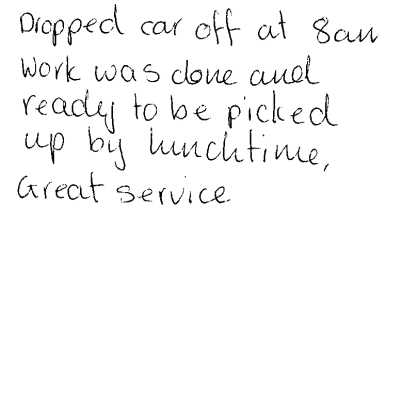 Dropped car off at 8am
Work was done and
ready to be picked
up by lunchtime,
Great service.